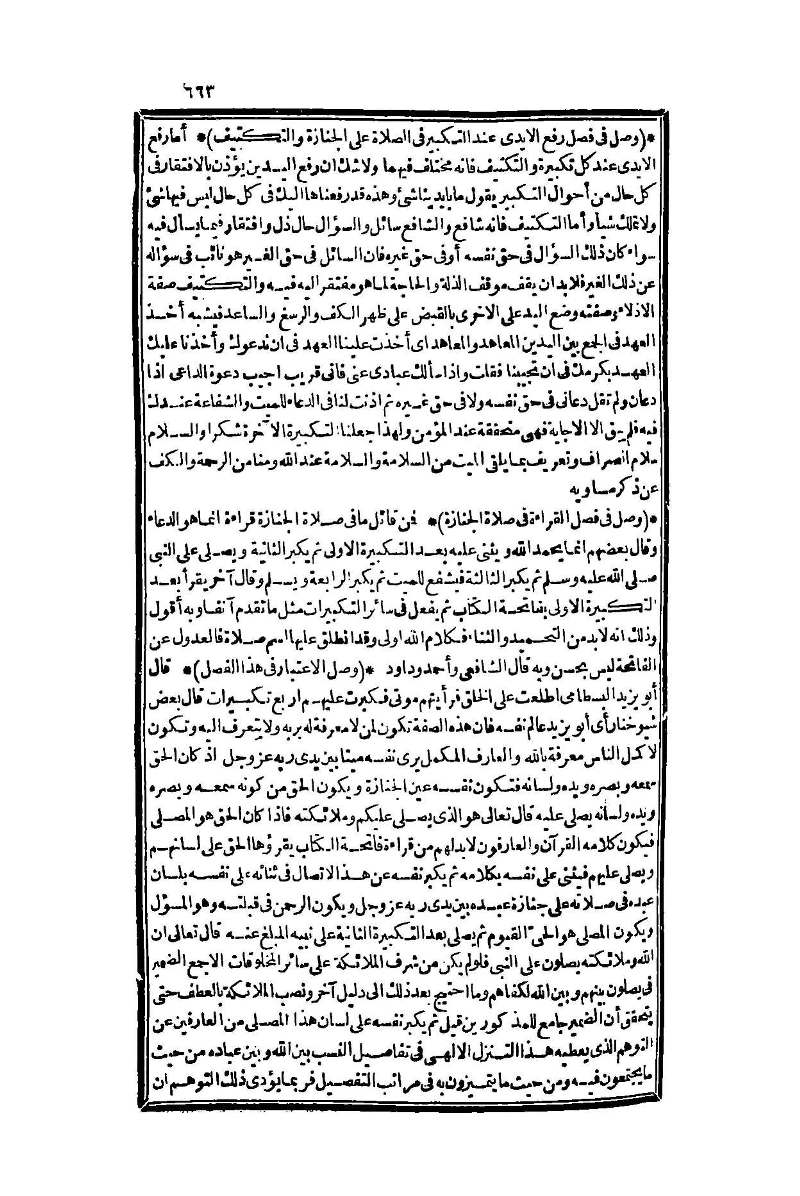 ٦٦٣
*(وصل فى فصل رفع الايدى عند التكبير فى الصلاة على الجنازة والتكتيف)* أما رفع
الايدى عند كل تكبيرة والتكتيف فانه مختلف فيهما ولا شك ان رفع اليدين يؤذن بالافتقار فى
كل حال من أحوال التكبير يقول ما بايدينا شئ وهذه قد رفعناها اليك فى كل حال ليس فيها شئ
ولا تملك شيأ وأما التكتيف فانه شافع والشافع سائل والسؤال حال ذل وافتقار فيما يسأل فيه
سواء كان ذلك السؤال فى حق نفسه أو فى حق غيره فان السائل فى حق الغير هو نائب فى سؤاله
عن ذلك الغير فلا بد ان يقف موقف الذلة والحاجة لما هو مفتقر اليه فيه والتكتيف صفة
الاذلاء وصفته وضع اليد على الاخرى بالقبض على ظهر الكف والرسغ والساعد فيشبه أخذ
العهد فى الجمع بين اليدين المعاهد والمعاهد اى أخذت علينا العهد فى ان ندعوك وأخذنا عليك
العهد بكرمك فى ان تجيبنا فقلت واذا سألك عبادى عنى فانى قريب اجيب دعوة الداعى اذا
دعان ولم تقل دعانى فى حق نفسه ولا فى حق غيره ثم اذنت لنا فى الدعاء للميت والشفاعة عندك
فيه فلم يبق الا الاجابة فهى متحققة عند المؤمن ولهذا جعلنا التكبيرة الآخرة شكرا والسلام
سلام انصراف وتعريف بما يلقى الميت من السلامة والسلامة عند الله ومنا من الرحمة والكف
عن ذكر مساويه
*(وصل فى فصل القراءة فى صلاة الجنازة)* فمن قائل ما فى صلاة الجنازة قراءة انما هو الدعاء
وقال بعضهم انما يحمد الله ويثنى عليه بعد التكبيرة الاولى ثم يكبر الثانية ويصلى على النبى
صلى الله عليه وسلم ثم يكبر الثالثة فيشفع للميت ثم يكبر الرابعة ويسلم وقال آخر يقرأ بعد
التكبيرة الاولى بفاتحة الكتاب ثم يفعل فى سائر التكبيرات مثل ما تقدم آنفا وبه أقول
وذلك انه لا بد من التحميد والثناء فكلام الله اولى وقد انطلق عليها اسم صلاة فالعدول عن
الفاتحة ليس بحسن وبه قال الشافعى وأحمد وداود *(وصل الاعتبار فى هذا الفصل)* قال
أبو يزيد البسطامى اطلعت على الخلق فرأيتهم موتى فكبرت عليهم اربع تكبيرات قال بعض
شيوخنا رأى أبو يزيد عالم نفسه فان هذه الصفة تكون لمن لا معرفة له بربه ولا يتعرف اليه وتكون
لاكمل الناس معرفة بالله والعارف المكمل يرى نفسه ميتا بين يدى ربه عز وجل اذ كان الحق
سمعه وبصره ويده ولسانه فتكون نفسه عين الجنازة ويكون الحق من كونه سمعه وبصره
ويده ولسانه يصلى عليه قال تعالى هو الذى يصلى عليكم وملائكته فاذا كان الحق هو المصلى
فيكون كلامه القرآن والعارفون لا بد لهم من قراءة فاتحة الكتاب يقرؤها الحق على لسانهم
ويصلى عليهم فيثنى على نفسه بكلامه ثم يكبر نفسه عن هذا الاتصال فى ثنائه على نفسه بلسان
عبده فى صلاته على جنازة عبده بين يدى ربه عز وجل ويكون الرحمن فى قبلته وهو المسؤل
ويكون المصلى هو الحى القيوم ثم يصلى بعد التكبيرة الثانية على نبيه المبلغ عنه قال تعالى ان
الله وملائكته يصلون على النبى فلو لم يكن من شرف الملائكة على سائر المخلوقات الاجمع الضمير
فى يصلون بينهم وبين الله لكفاهم وما احتيج بعد ذلك الى دليل آخر ونصب الملائكة بالعطف حتى
يتحقق أن الضمير جامع للمذكورين قبل ثم يكبر نفسه على لسان هذا المصلى من العارفين عن
التوهم الذى يعطيه هذا التنزل الالهى فى تفاصيل النسب بين الله وبين عباده من حيث
ما يجتمعون فيه ومن حيث ما يتميزون به فى مراتب التفصيل فربما يؤدى ذلك التوهم ان